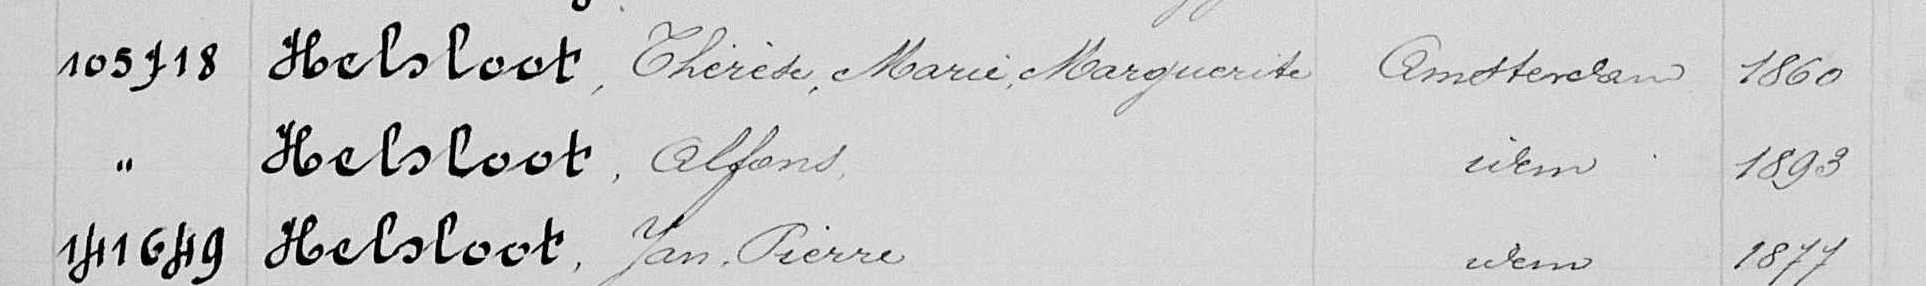 105718 Helsloot, Thérèse, Marie, Marguerite Amsterdam 1860
" Helsloot, Alfons, idem 1893
141649 Helsloot, Jan, Pierre idem 1877